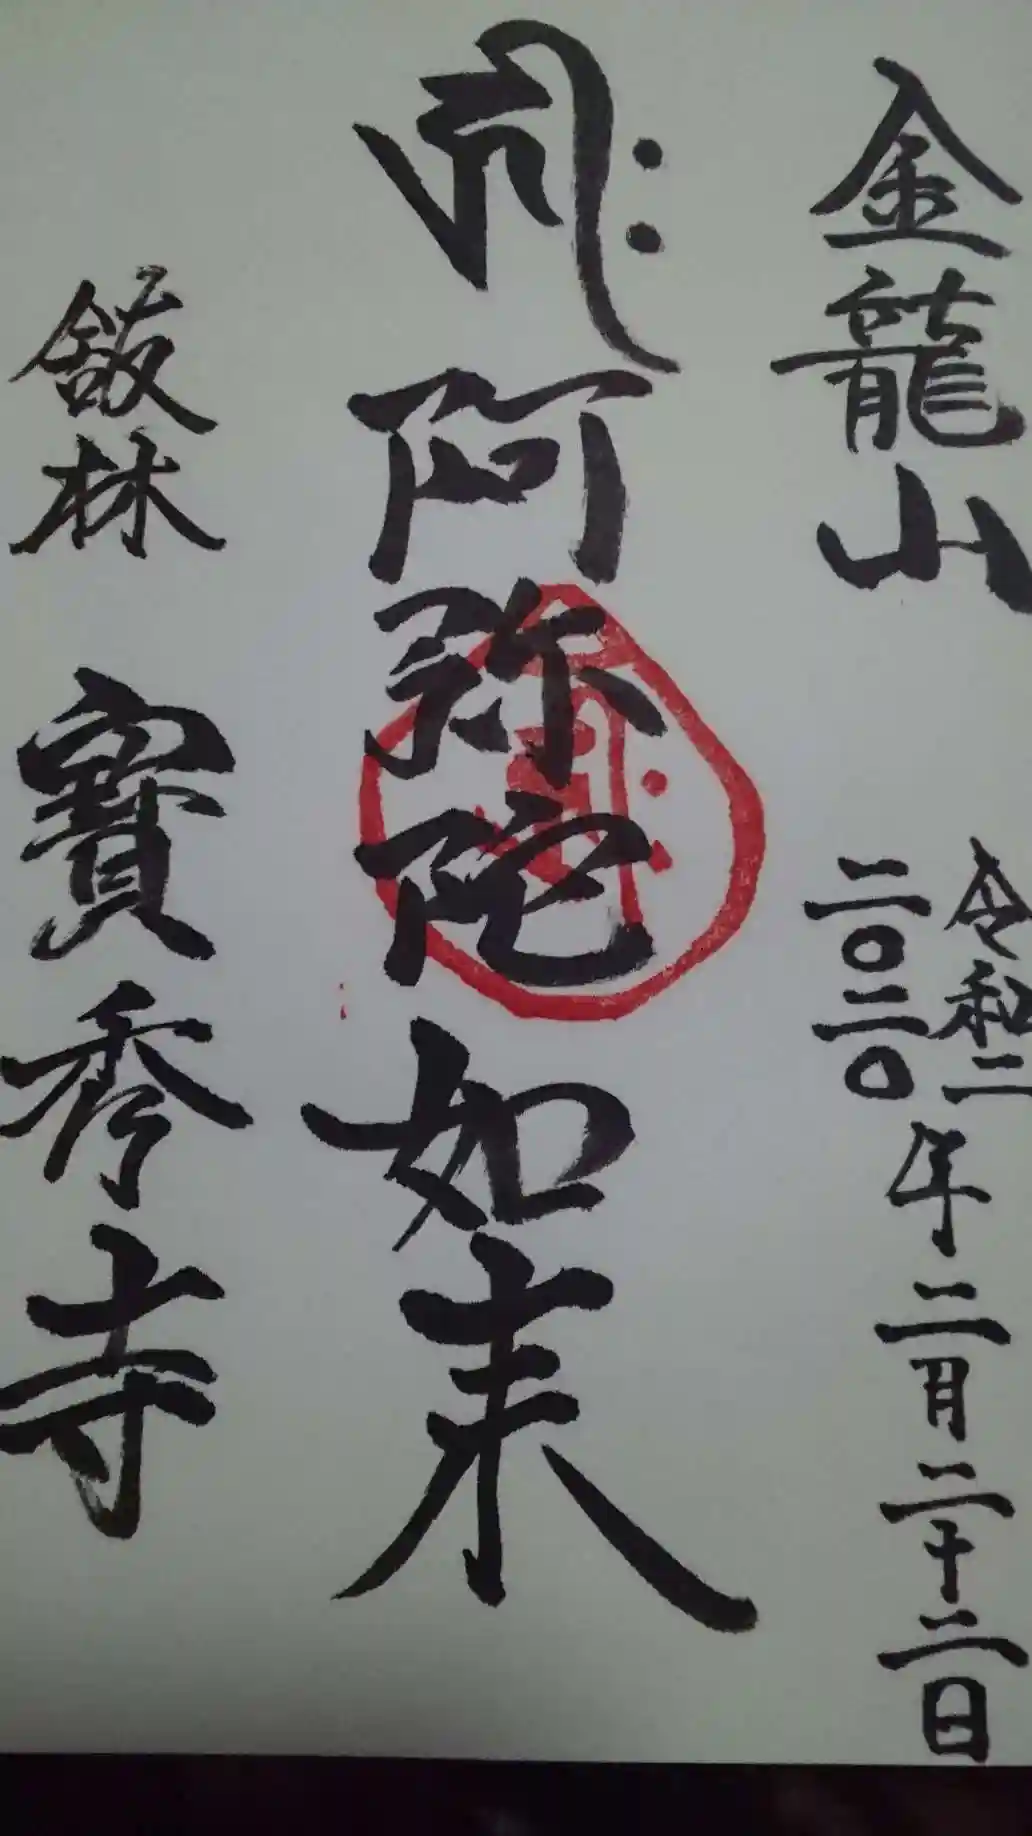 金龍山
令和二
二〇二〇年二月二十二日
𑖮𑖿𑖨𑖱𑖾
阿弥陀如来
飯林 寳秀寺